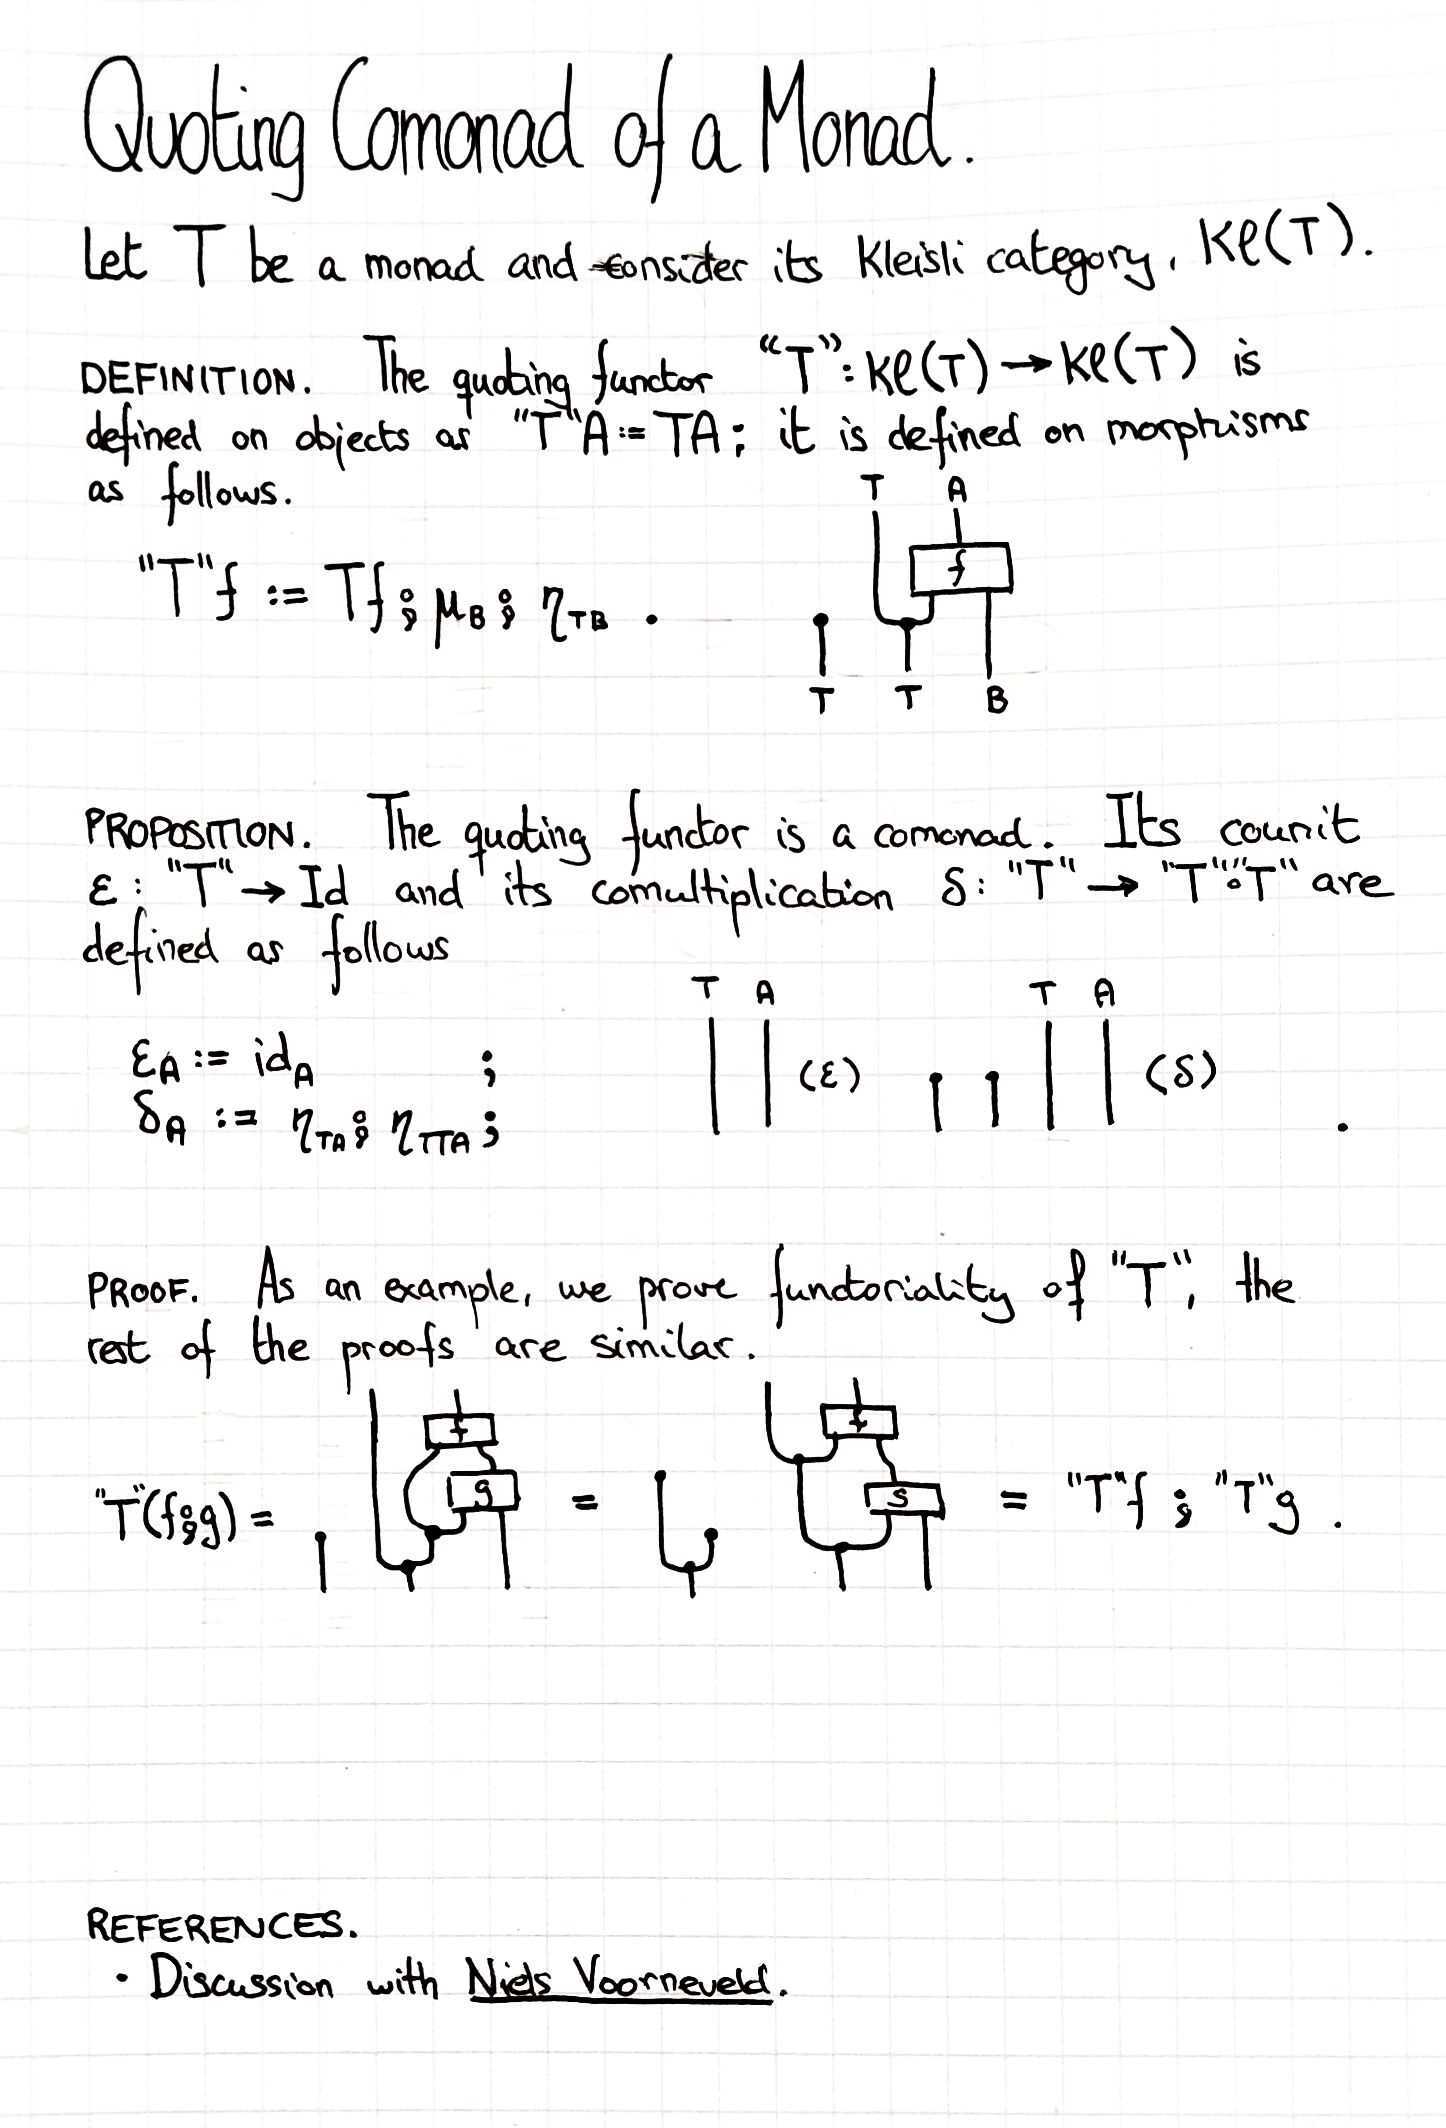 Quoting Comonad of a Monad.
Let T be a monad and consider its Kleisli category, Kℓ(T).
DEFINITION. The quoting functor “T”: Kℓ(T) → Kℓ(T) is
defined on objects as "T"A := TA; it is defined on morphisms
as follows.
T A
"T"f := Tf ⨾ μ_B ⨾ η_TB .
f
T T B
PROPOSITION. The quoting functor is a comonad. Its counit
ε: "T" → Id and its comultiplication δ: "T" → "T"∘"T" are
defined as follows
T A T A
ε_A := id_A ; (ε) (δ)
δ_A := η_TA ⨾ η_TTA ; .
PROOF. As an example, we prove functoriality of "T", the
rest of the proofs are similar.
f f
"T"(f⨾g) = g = s = "T"f ⨾ "T"g .
REFERENCES.
· Discussion with Niels Voorneveld.